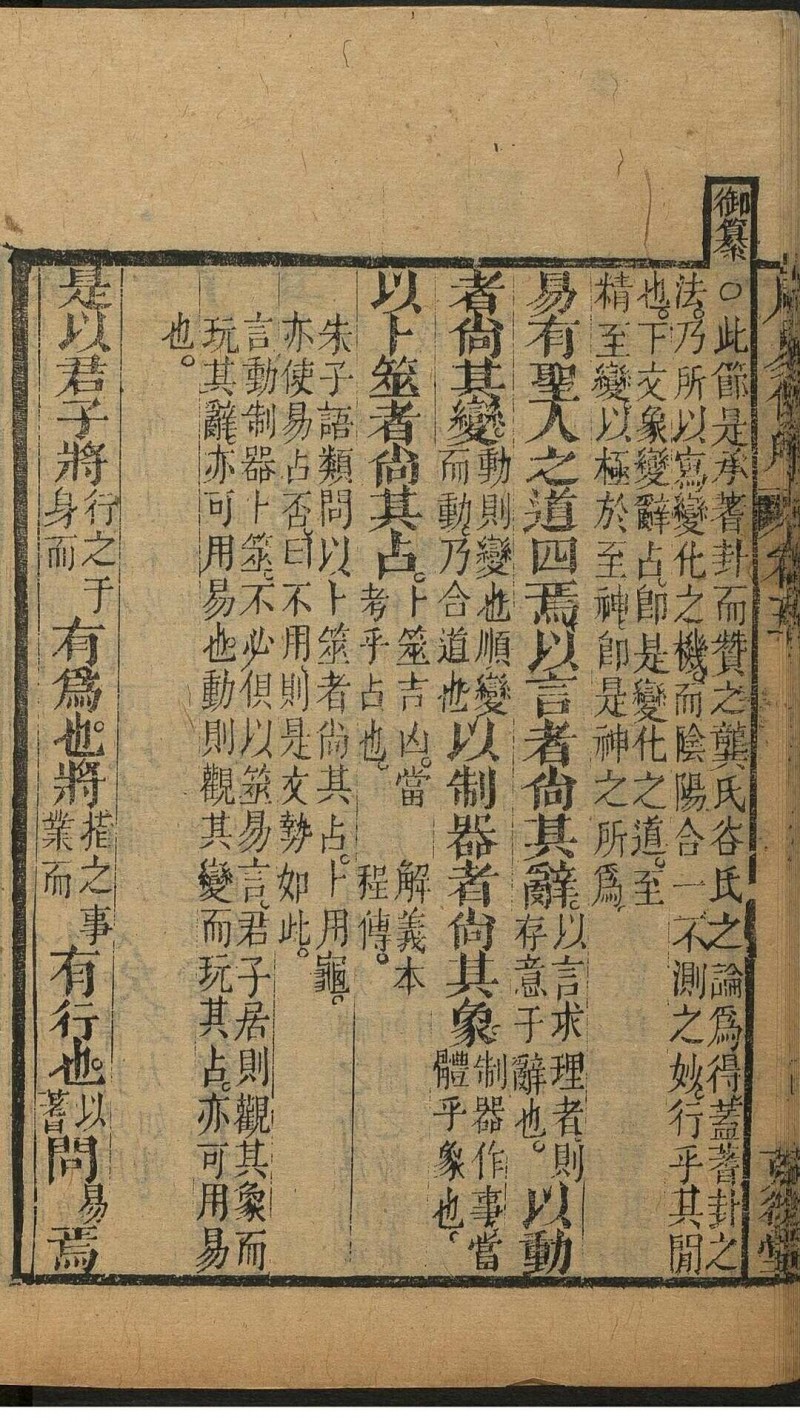 御纂
○此節是承蓍卦而贊之龔氏谷氏之論為得蓋蓍卦之
法。乃所以寫變化之機。而陰陽合一不測之妙。行乎其間
也。下文象變辭占。即是變化之道。至
精至變以極於至神。即是神之所為。
易有聖人之道四焉以言者尚其辭。以言求理者則存意于辭也。以動
者尚其變。動則變也順變而動。乃合道也以制器者尚其象制器作事當體乎象也。
以卜筮者尚其占。卜筮吉凶。當考乎占也。 解義本程傳。
朱子語類問以卜筮者尚其占。卜用龜。
亦使易占否。曰不用則是文勢如此。
言動制器卜筮。不必俱以筮易言。君子居則觀其象而
玩其辭。亦可用易也動則觀其變而玩其占。亦可用易
也。
是以君子將行之于身而有為也。將措之事業而有行也。以蓍問易焉